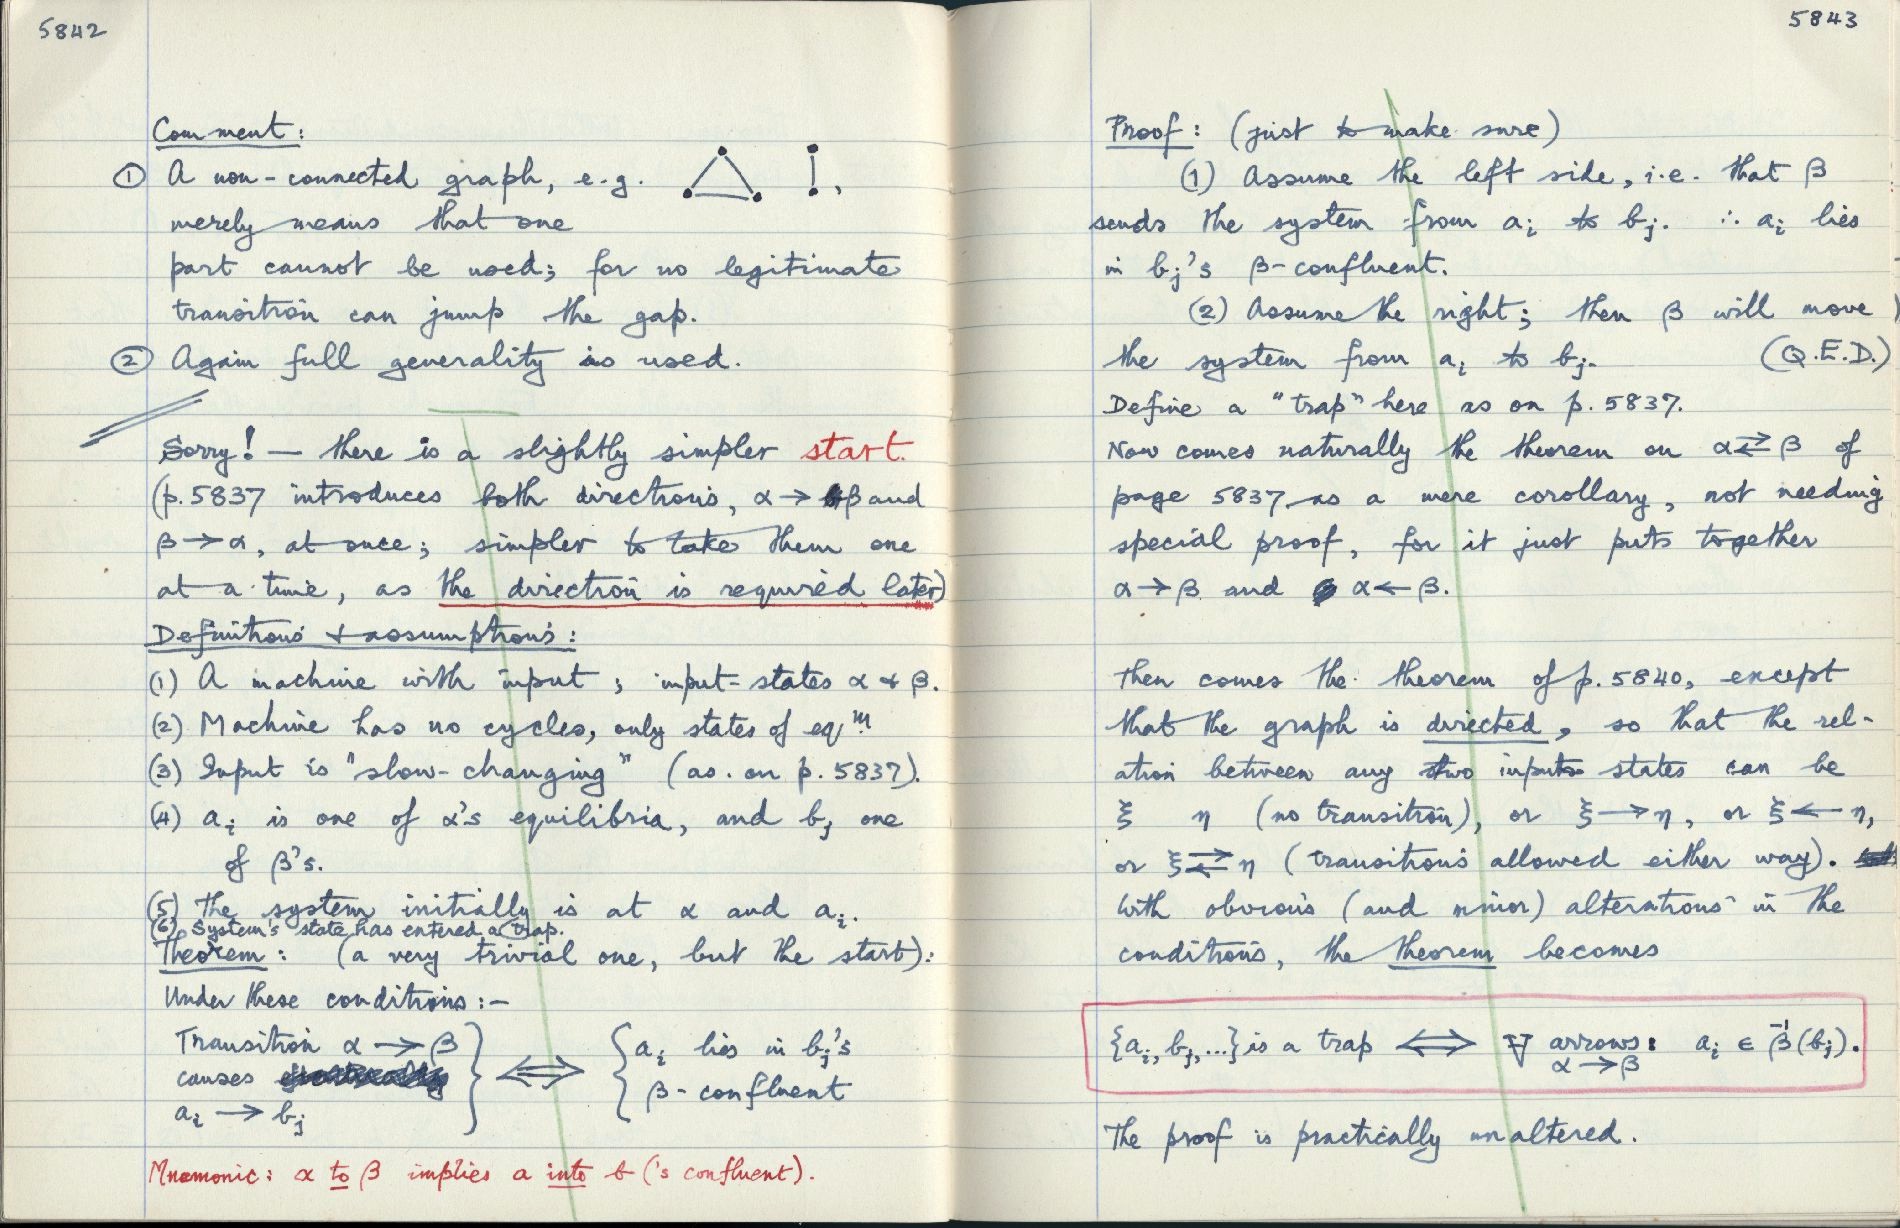 5842
Comment:
① A non-connected graph, e.g.
merely means that one
part cannot be used; for no legitimate
transition can jump the gap.
② Again full generality is used.
Sorry! — there is a slightly simpler start.
(p.5837 introduces both directions, α → β and
β → α, at once; simpler to take them one
at a time, as the direction is required later)
Definitions & assumptions:
(1) A machine with input; input-states α & β.
(2) Machine has no cycles, only states of eqᵐ.
(3) Input is "slow-changing" (as on p. 5837).
(4) aᵢ is one of α's equilibria, and bⱼ one
of β's.
(5) The system initially is at α and aᵢ.
(6) System's state has entered a trap.
Theorem: (a very trivial one, but the start):
Under these conditions:—
Transition α → β
causes
aᵢ → bⱼ
⟺
aᵢ lies in bⱼ's
β-confluent
Mnemonic: α to β implies a into b ('s confluent).
5843
Proof: (just to make sure)
(1) Assume the left side, i.e. that β
sends the system from aᵢ to bⱼ. ∴ aᵢ lies
in bⱼ's β-confluent.
(2) Assume the right; then β will move
the system from aᵢ to bⱼ. (Q.E.D.)
Define a "trap" here as on p. 5837.
Now comes naturally the theorem on α ⇄ β of
page 5837 as a mere corollary, not needing
special proof, for it just puts together
α → β and α ← β.
Then comes the theorem of p. 5840, except
that the graph is directed, so that the rel-
ation between any two input states can be
ξ η (no transition), or ξ → η, or ξ ← η,
or ξ ⇄ η (transitions allowed either way).
With obvious (and minor) alterations in the
conditions, the theorem becomes
{aᵢ, bⱼ, ...} is a trap ⟺ ∀ arrows: aᵢ ∈ β⁻¹(bⱼ).
α → β
The proof is practically unaltered.